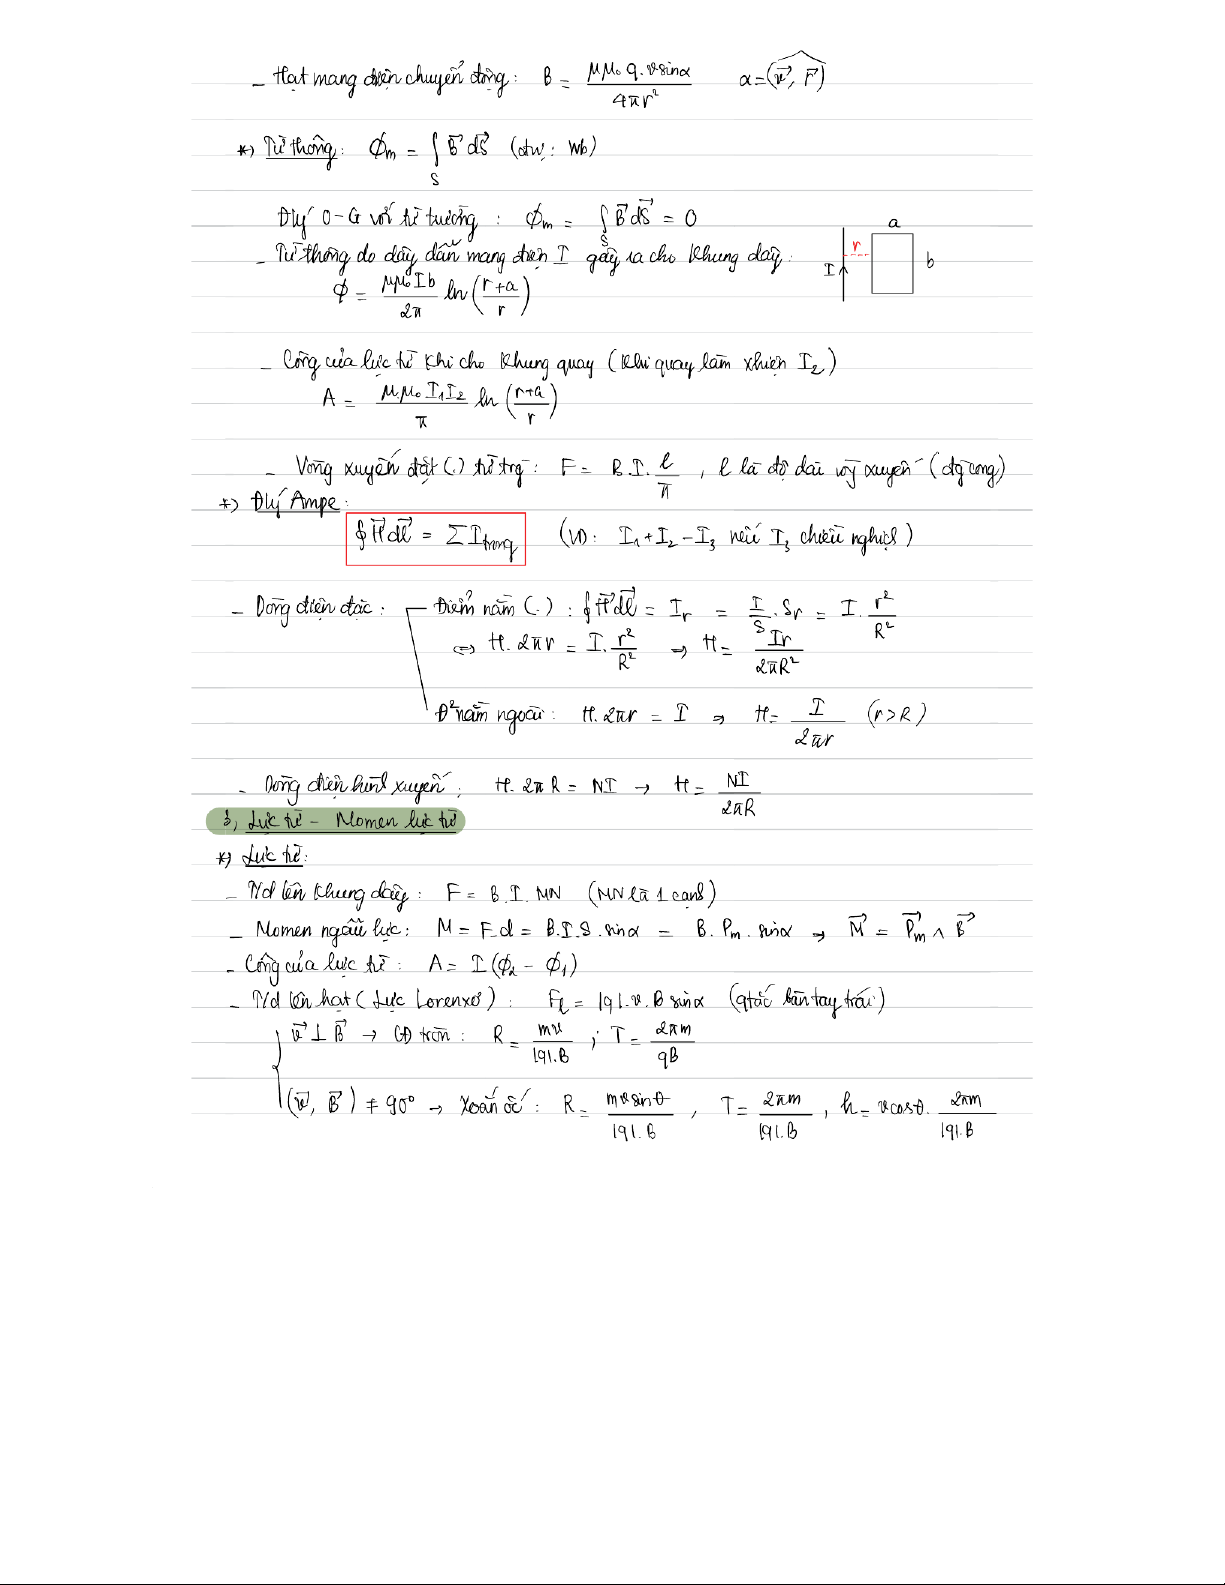 - Hạt mang điện chuyển động: B = μμ₀ q.v sinα / 4πr²   α = (v⃗, r⃗)
*) Từ thông: ϕm = ∫S B⃗ dS⃗ (đvị: Wb)
Đlý O-G với từ trường: ϕm = ∫S B⃗ dS⃗ = 0
- Từ thông do dây dẫn mang điện I gây ra cho khung dây:
ϕ = μμ₀Ib / 2π ln(r+a / r)
a
r
I
b
- Công của lực từ khi cho khung quay (khi quay làm xhiện I₂)
A = μμ₀ I₁I₂ / π ln(r+a / r)
- Vòng xuyến đặt (.) từ trg: F = B.I. l/π , l là độ dài vg xuyến (đg cong)
*) Đlý Ampe:
∮H⃗dl⃗ = ΣI trong   (VD: I₁ + I₂ - I₃ nếu I₃ chiều nghịch)
- Dòng điện đặc: Điểm nằm (.): ∮H⃗dl⃗ = Ir = I/S . Sr = I. r²/R²
⇔ H. 2πr = I. r²/R² ⇒ H = Ir / 2πR²
Đ² nằm ngoài: H. 2πr = I ⇒ H = I / 2πr (r > R)
- Dòng điện hình xuyến: H. 2πR = NI → H = NI / 2πR
3, Lực từ - Momen lực từ
*) Lực từ:
- T/d lên khung dây: F = B.I. MN (MN là 1 cạnh)
- Momen ngẫu lực: M = F.d = B.I.S.sinα = B. Pm. sinα ⇒ M⃗ = P⃗m ∧ B⃗
- Công của lực từ: A = I(ϕ₂ - ϕ₁)
- T/d lên hạt (Lực Lorenxơ): FL = |q|.v.B sinα (qtắc bàn tay trái)
v⃗ ⊥ B⃗ → CĐ tròn: R = mv / |q|.B ; T = 2πm / qB
(v⃗, B⃗) ≠ 90° → Xoắn ốc: R = mv sinθ / |q|.B , T = 2πm / |q|.B , h = v cosθ. 2πm / |q|.B